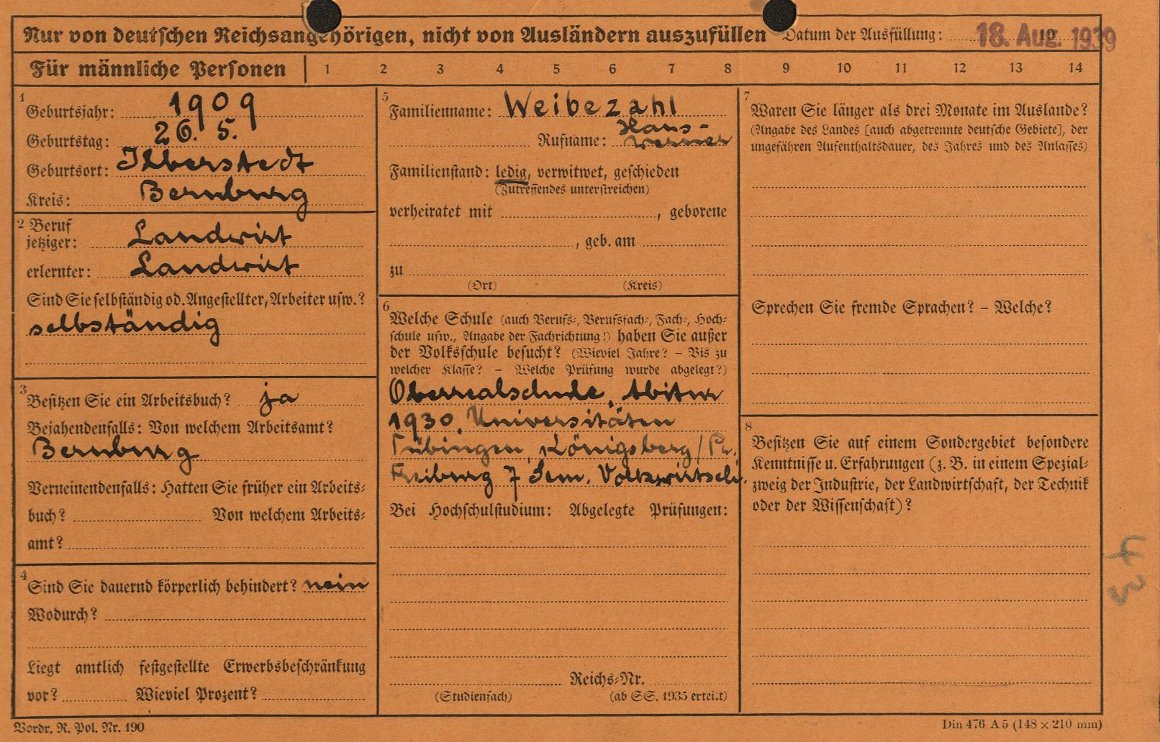 Nur von deutschen Reichsangehörigen, nicht von Ausländern auszufüllen Datum der Ausfüllung: 18. Aug. 1939
Für männliche Personen 1 2 3 4 5 6 7 8 9 10 11 12 13 14
1
Geburtsjahr: 1909
Geburtstag: 26. 5.
Geburtsort: Ilberstedt
Kreis: Bernburg
2 Beruf
jetziger: Landwirt
erlernter: Landwirt
Sind Sie selbständig od. Angestellter, Arbeiter usw.?
selbständig
3
Besitzen Sie ein Arbeitsbuch? ja
Bejahendenfalls: Von welchem Arbeitsamt?
Bernburg
Verneinendenfalls: Hatten Sie früher ein Arbeits-
buch? Von welchem Arbeits-
amt?
4
Sind Sie dauernd körperlich behindert? nein
Wodurch?
Liegt amtlich festgestellte Erwerbsbeschränkung
vor? Wieviel Prozent?
5
Familienname: Weibezahl
Rufname: Hans-
Werner
Familienstand: ledig, verwitwet, geschieden
(Zutreffendes unterstreichen)
verheiratet mit , geborene
, geb. am
zu
(Ort) (Kreis)
6
Welche Schule (auch Berufs-, Berufsfach-, Fach-, Hoch-
schule usw., Angabe der Fachrichtung!) haben Sie außer
der Volksschule besucht? (Wieviel Jahre? – Bis zu
welcher Klasse? – Welche Prüfung wurde abgelegt?)
Oberrealschule, Abitur
1930, Universitäten
Tübingen, Königsberg/Pr.
Freiburg 7 Sem. Volkswirtsch.
Bei Hochschulstudium: Abgelegte Prüfungen:
Reichs-Nr.
(Studienfach) (ab SS. 1935 erteilt)
7
Waren Sie länger als drei Monate im Auslande?
(Angabe des Landes [auch abgetrennte deutsche Gebiete], der
ungefähren Aufenthaltsdauer, des Jahres und des Anlasses)
Sprechen Sie fremde Sprachen? – Welche?
8
Besitzen Sie auf einem Sondergebiet besondere
Kenntnisse u. Erfahrungen (z. B. in einem Spezial-
zweig der Industrie, der Landwirtschaft, der Technik
oder der Wissenschaft)?
Vordr. R. Pol. Nr. 190
Din 476 A 5 (148 × 210 mm)